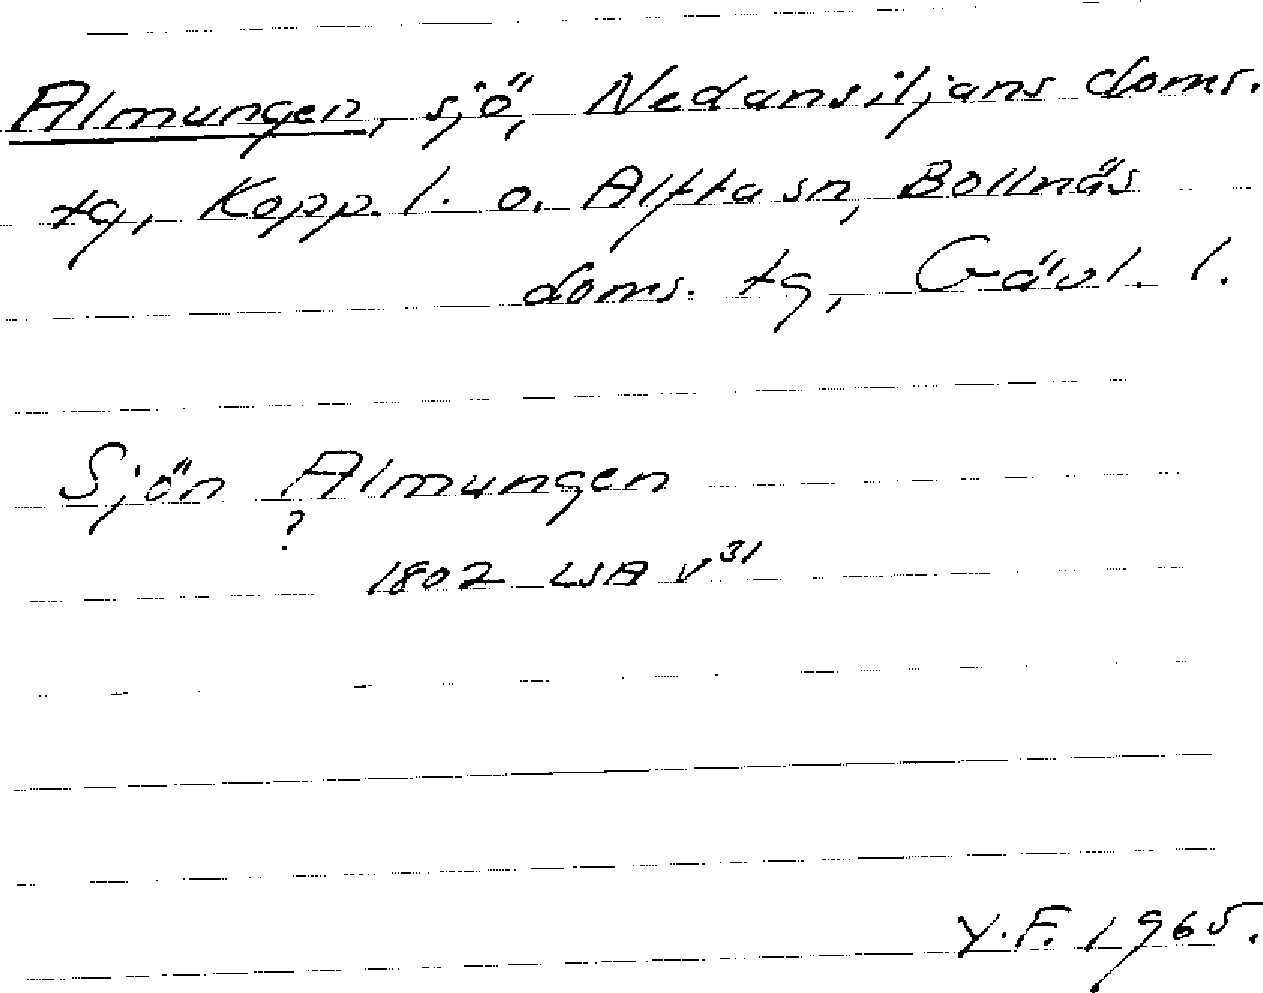 Almungen, sjö, Nedansiljans doms.
tg, Kopp. l. o. Alfta sn, Bollnäs
doms. tg, Gävl. l.
Sjön Almungen
?
1802 LSA V31
Y.F. 1965.